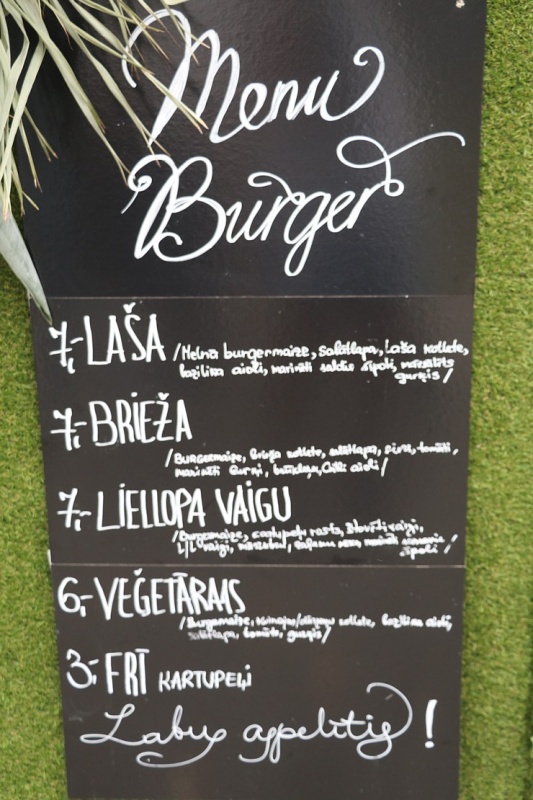 Menu
Burger
7,- LAŠA /Melnā burgermaize, Salātlapa, Laša kotlete,
bazilika aioli, marinēti saldie sīpoli, mazsālīts
gurķis/
7,- BRIEŽA
/Burgermaize, Brieža kotlete, salātlapa, siers, tomāti,
marinēti gurķi, Chilli aioli/
7,- LIELLOPA VAIGU
/Burgermaize, kartupeļu rasts, vaigi,
L/L vaigi, marinēti
sīpoli/
6,- VEĢETĀRAIS
/Burgermaize, kotlete, bazilika aioli,
salātlapa, tomāts, gurķis/
3,- FRĪ KARTUPEĻI
Labu appetīti!